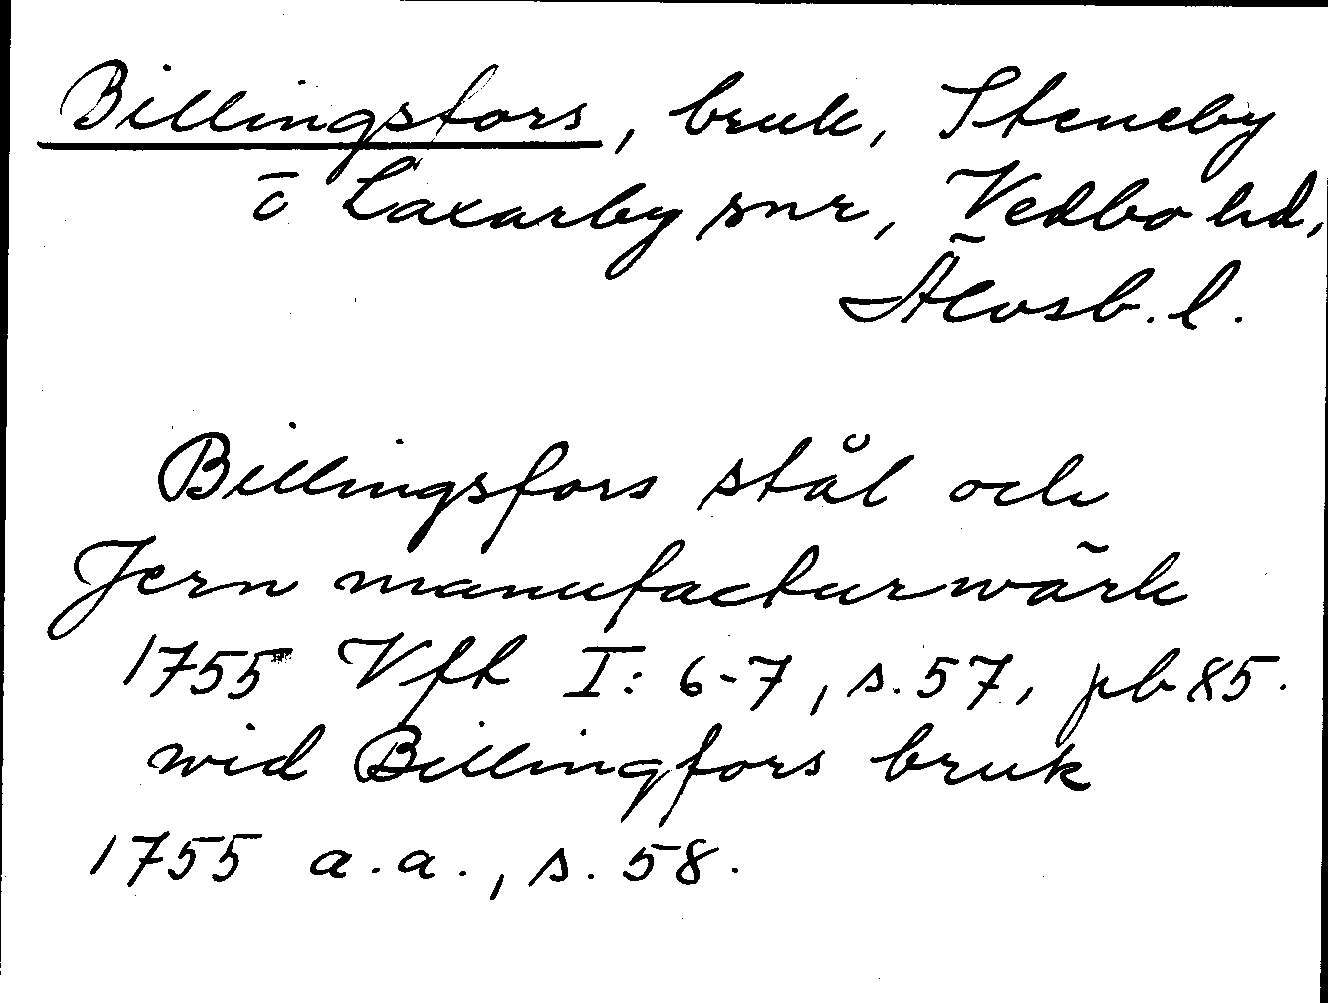 Billingsfors, bruk, Steneby
o Laxarby snr, Vedbo hd,
Älvsb. l.
Billingsfors stål och
Jern manufacturwärk
1755 Vfk I: 6-7, s. 57, pb 85.
wid Billingfors bruk
1755 a.a., s. 58.